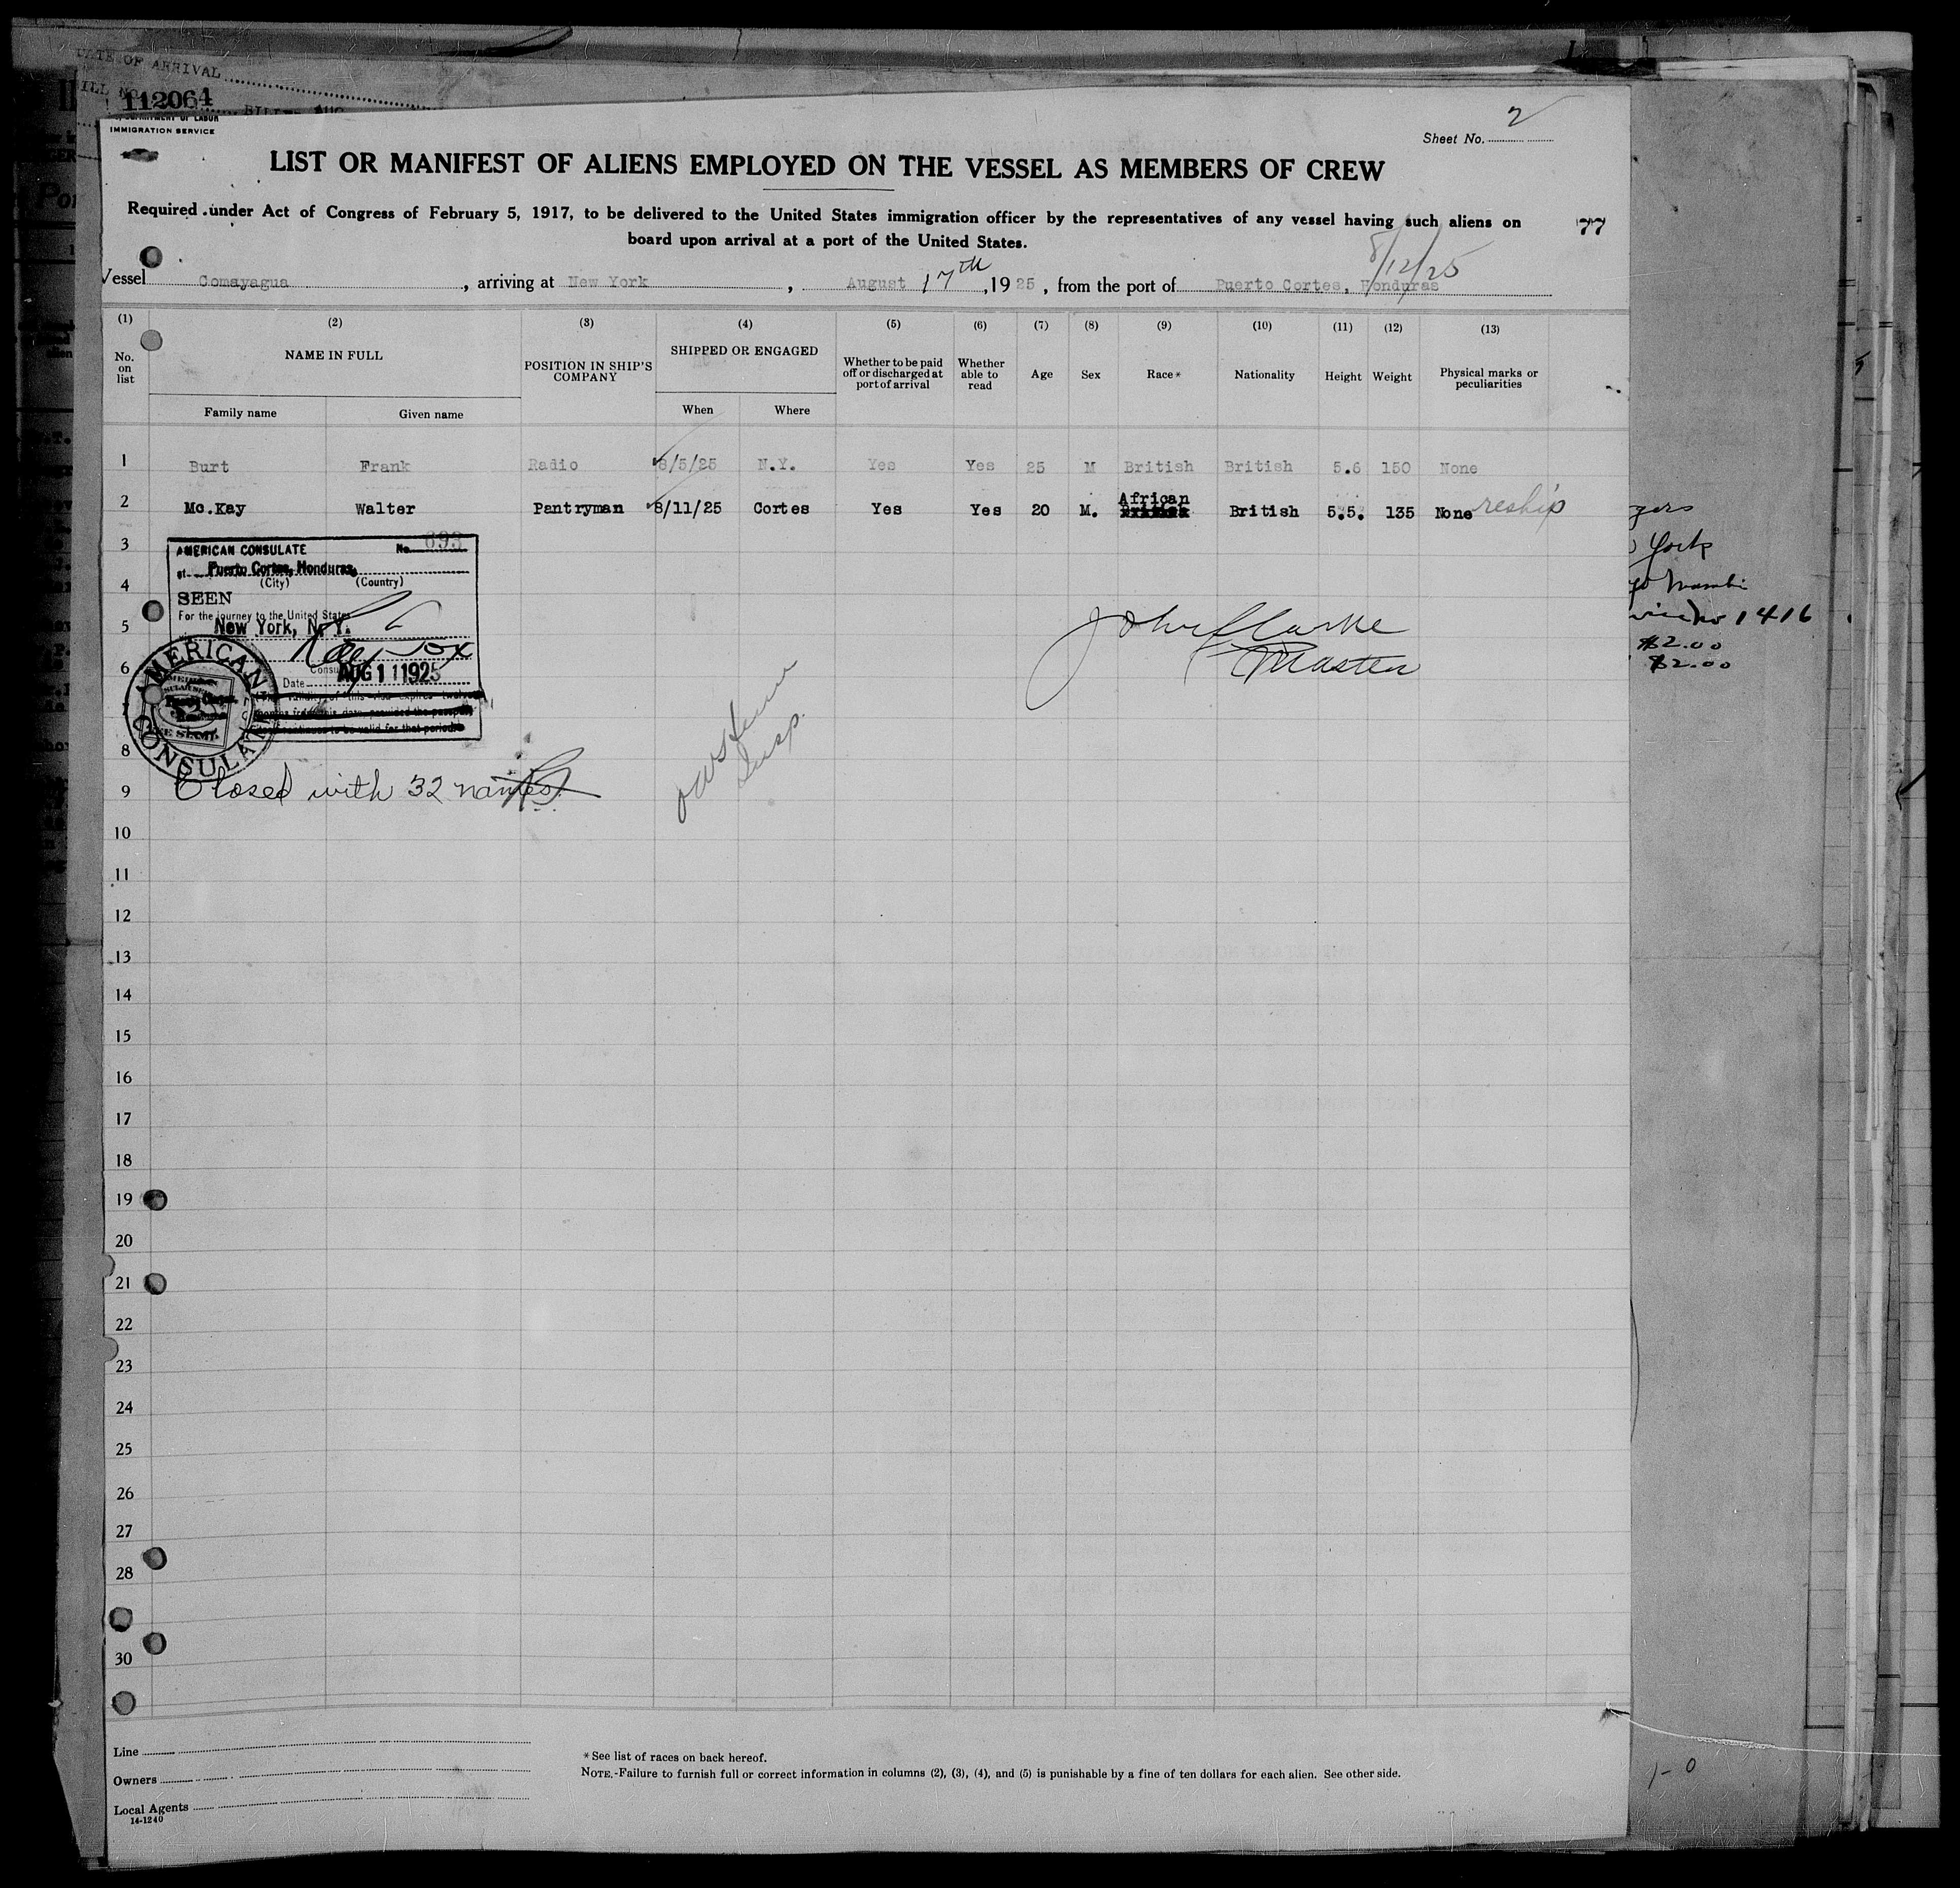 DATE OF ARRIVAL
112064
IMMIGRATION SERVICE
Sheet No. 2
LIST OR MANIFEST OF ALIENS EMPLOYED ON THE VESSEL AS MEMBERS OF CREW
Required under Act of Congress of February 5, 1917, to be delivered to the United States immigration officer by the representatives of any vessel having such aliens on
board upon arrival at a port of the United States.
77
8/12/25
Vessel Comayagua, arriving at New York, August 17th, 1925, from the port of Puerto Cortes, Honduras
(1) (2) (3) (4) (5) (6) (7) (8) (9) (10) (11) (12) (13)
No. on list NAME IN FULL POSITION IN SHIP'S COMPANY SHIPPED OR ENGAGED Whether to be paid off or discharged at port of arrival Whether able to read Age Sex Race* Nationality Height Weight Physical marks or peculiarities
Family name Given name When Where
1 Burt Frank Radio 8/5/25 N.Y. Yes Yes 25 M British British 5.6 150 None
2 Mc.Kay Walter Pantryman 8/11/25 Cortes Yes Yes 20 M. African British 5.5. 135 None reship
3
4
5
6
7
8
9
10
11
12
13
14
15
16
17
18
19
20
21
22
23
24
25
26
27
28
30
AMERICAN CONSULATE No. 693
at Puerto Cortes, Honduras,
(City) (Country)
SEEN
For the journey to the United States
New York, N.Y.
Date AUG 11 1925
AMERICAN CONSULATE
John Clarke
Master
Insp.
Closed with 32 names.
York
1416
$2.00
$2.00
Line
Owners
Local Agents
14-1240
*See list of races on back hereof.
NOTE.-Failure to furnish full or correct information in columns (2), (3), (4), and (5) is punishable by a fine of ten dollars for each alien. See other side.
1-0